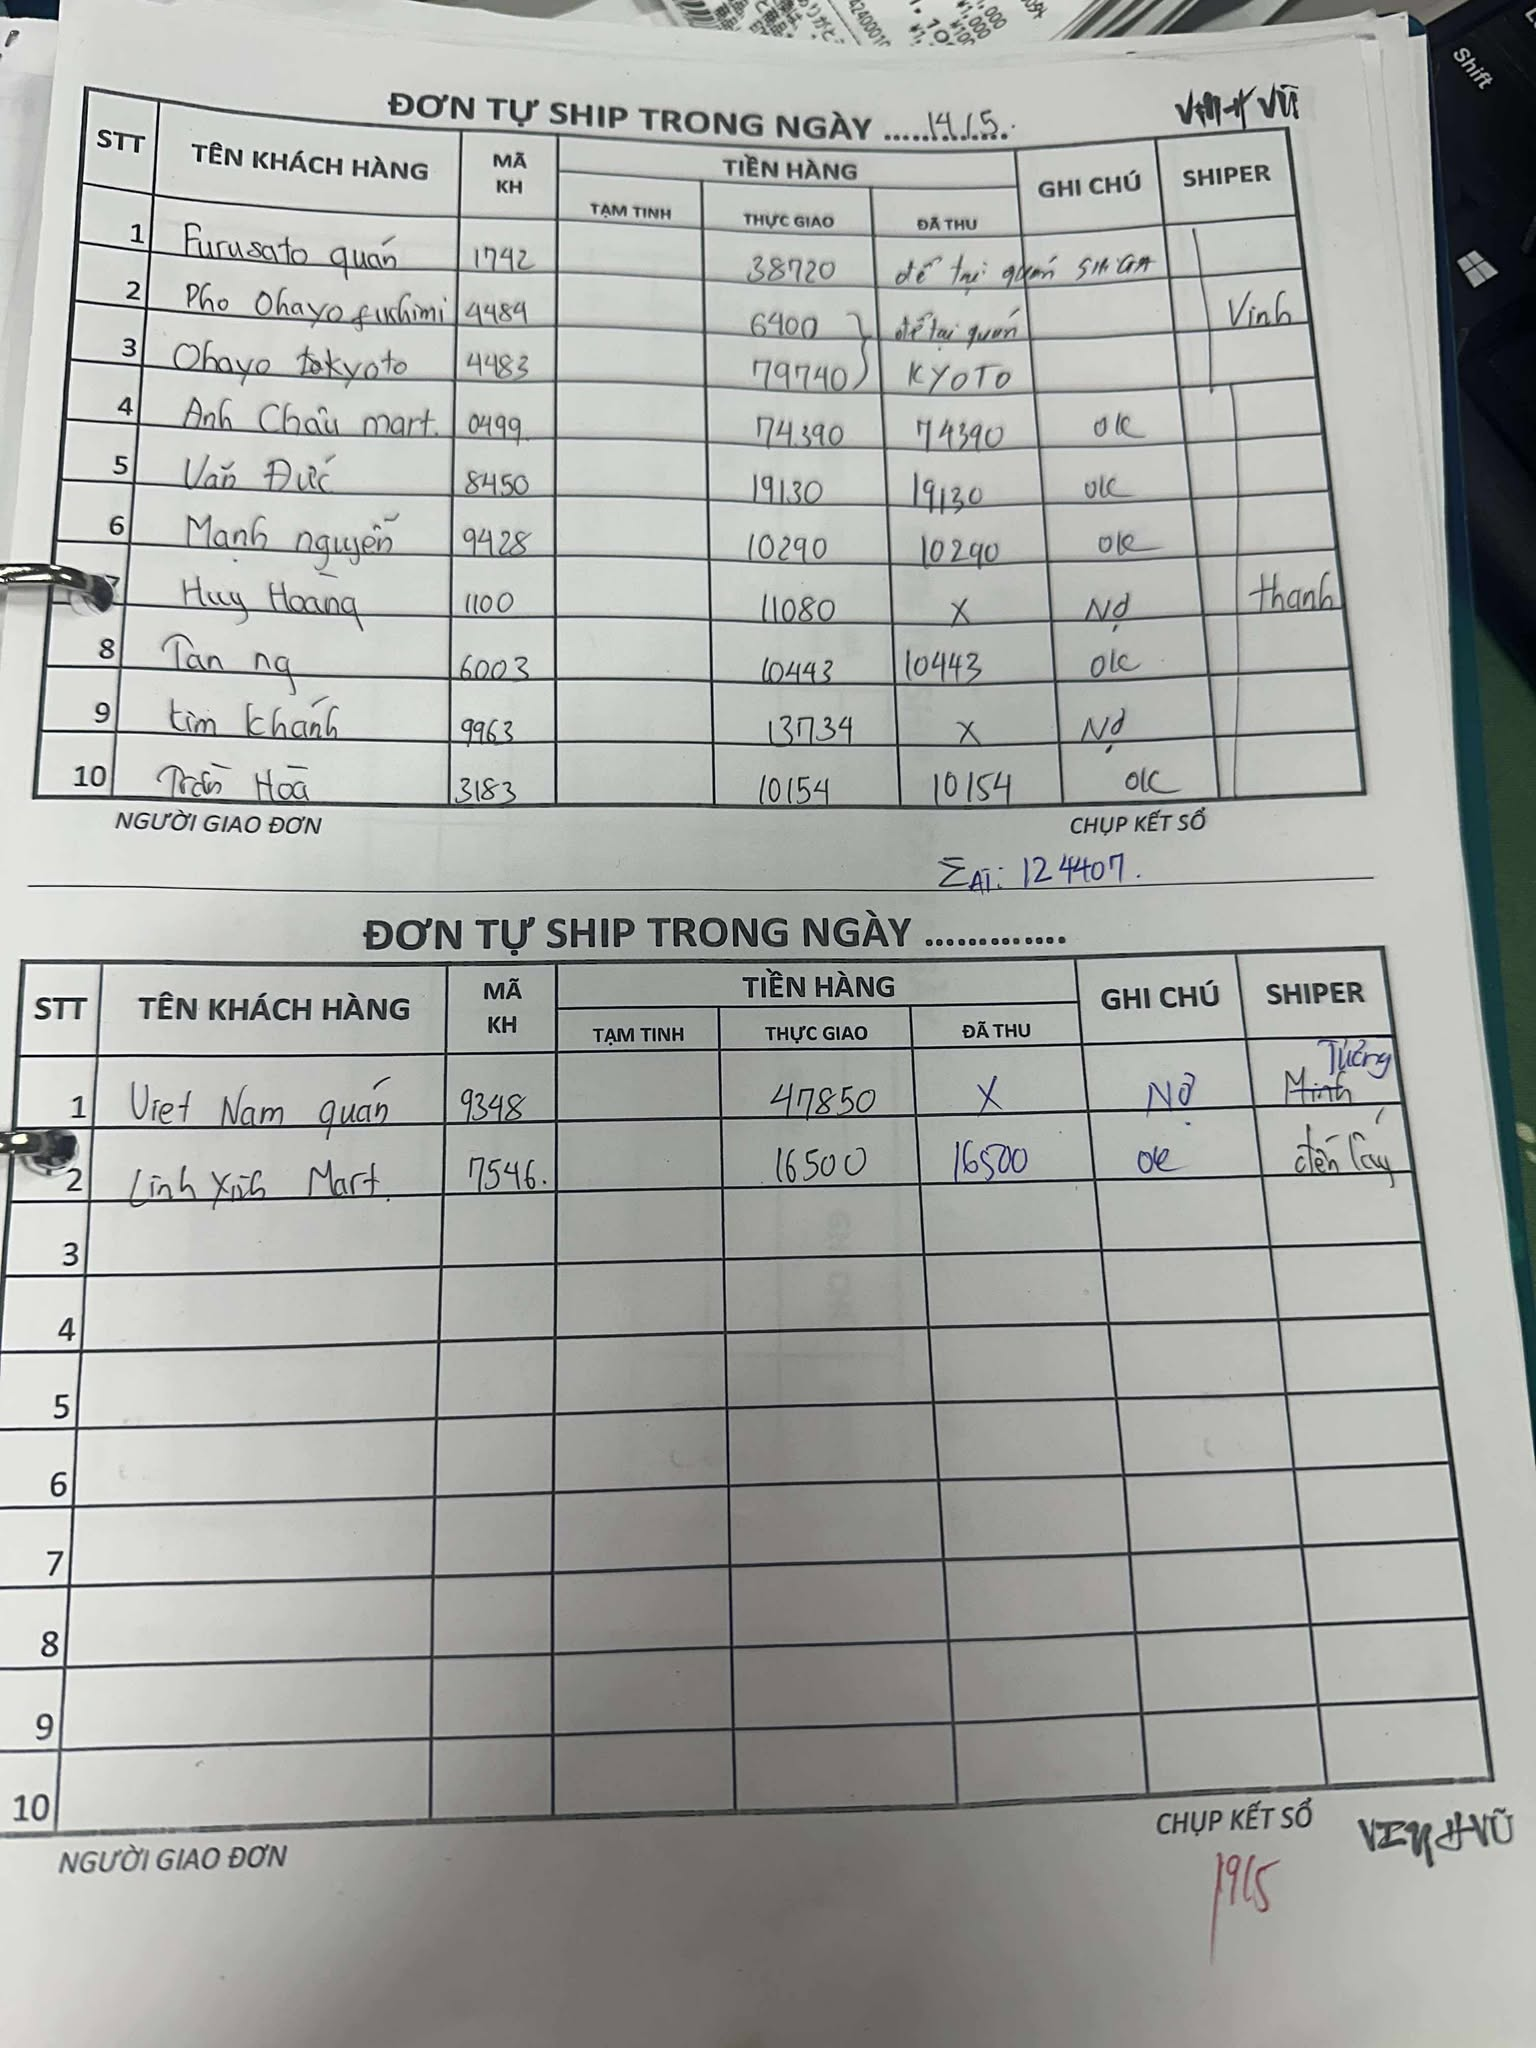 ĐƠN TỰ SHIP TRONG NGÀY .....14/5..
VŨ
STT TÊN KHÁCH HÀNG MÃ KH TIỀN HÀNG GHI CHÚ SHIPER
TẠM TINH THỰC GIAO ĐÃ THU
1 Furusato quán 1742 38720 để tại quán SHIGA
2 Pho Ohayo fushimi 4484 6400 để tại quán Vinh
3 Ohayo tokyoto 4483 79740 KYOTO
4 Anh Châu mart. 0499 74390 74390 ok
5 Văn Đức 8450 19130 19130 ok
6 Mạnh nguyễn 9428 10290 10290 ok
7 Huy Hoàng 1100 11080 X Nợ thanh
8 Tan ng 6003 10443 10443 ok
9 tim khánh 9963 13734 X Nợ
10 Trần Hoà 3183 10154 10154 ok
NGƯỜI GIAO ĐƠN CHỤP KẾT SỔ
Σ 124407.
ĐƠN TỰ SHIP TRONG NGÀY .............
STT TÊN KHÁCH HÀNG MÃ KH TIỀN HÀNG GHI CHÚ SHIPER
TẠM TINH THỰC GIAO ĐÃ THU
Tường
1 Viet Nam quán 9348 47850 X Nợ Minh
2 Linh Mart. 7546. 16500 16500 ok đến lấy
3
4
5
6
7
8
9
10
NGƯỜI GIAO ĐƠN CHỤP KẾT SỔ VINH VŨ
19/5
Shift